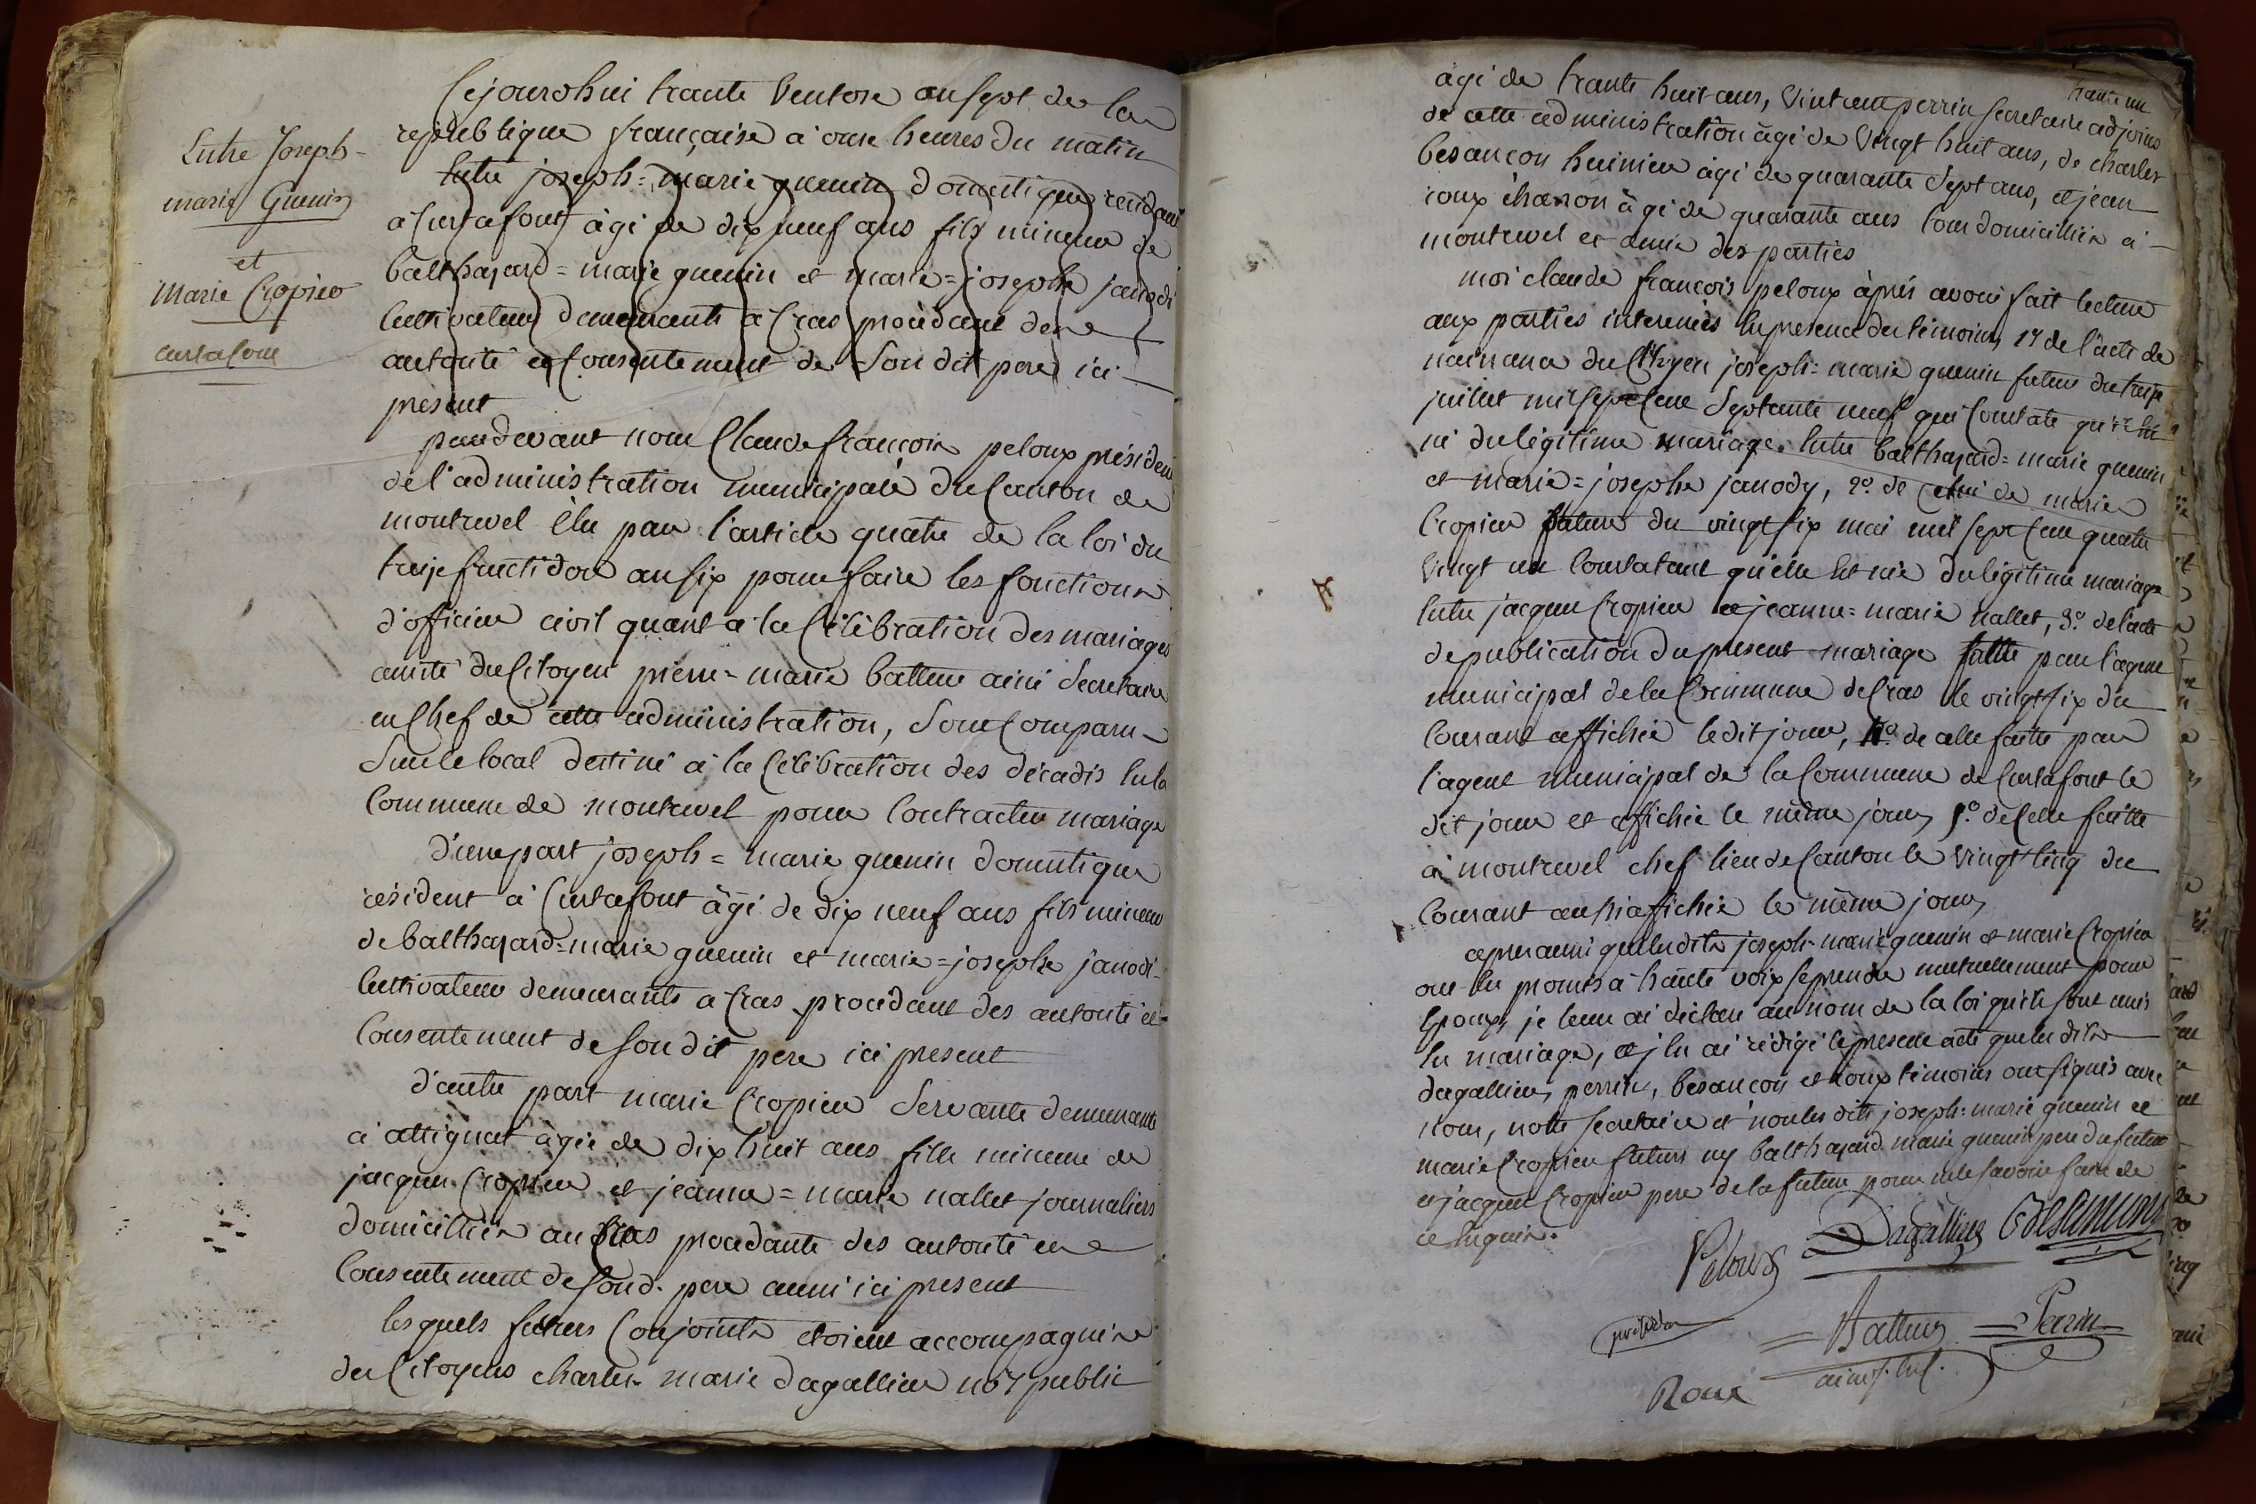 Entre Joseph-
marie Guenin
et
Marie Cropier
curtafont
Cejourdhui trante Ventose an sept de la
republique française à onze heures du matin
Entre joseph=marie guenin domestique residant
à Curtafont âgé de dix neuf ans fils mineur de
balthazard=marie guenin et marie=josephe janodi
Cultivateurs demeurants à Cras procédant de
autorité et Consentement de Son dit pere ici
présent
pardevant nous Claude françois peloux président
de l'administration municipale du Canton de
montrevel Elu par l'article quatre de la loi du
treize fructidor an six pour faire les fonctions
d'officier civil quant à la Célébration des mariages
assisté du Citoyen pierre=marie batteur ainé Secretaire
en Chef de cette administration, Sont Comparu
Sur le local destiné à la Célébration des décadis En la
Commune de montrevel pour Contracter mariage
d'une part joseph=marie guenin domestique
résident à Curtafont âgé de dix neuf ans fils mineur
de balthazard=marie guenin et marie=josephe janodi
Cultivateur demeurants a Cras procédant des autorité et
Consentement de son dit pere ici présent
d'autre part marie Cropier Servante demeurante
à attignat âgée de dix huit ans fille mineure de
jacques Cropier et jeanne=marie nallet journaliers
domicilliés au Cras procédante des autorité et
Consentement de sond. pere aussi ici présent
lesquels futurs Conjoints etoient accompagnés
des Citoyens charles marie dagallier nore public
trante un
âgé de trante huit ans, Vincent perrin secretaire adjoint
de cette administration âgé de Vingt huit ans, de charles
besançon huissier âgé de quarante Sept ans, et jean
roux charon âgé de quarante ans tous domicilliés à
montrevel et amis des parties
moi claude françois peloux après avoir fait lecture
aux parties interessées En presence des témoins 1º de l'acte de
naissance du Citoyen joseph=marie guenin futur du treize
juillet mil sept Cent Septante neuf qui Constate qu'il Est
né du légitime mariage Entre balthazard=marie guenin
et marie=josephe janody, 2º. de Celui de marie
Cropier future du vingt six mai mil sept Cent quatre
Vingt un Constatant qu'elle Est née du légitime mariage
Entre jacques Cropier et jeanne=marie nallet, 3º. de l'acte
de publication du present mariage faitte par l'agent
municipal de la Commune de Cras le vingt six du
Courant affichée ledit jour, 4º. de celle faitte par
l'agent municipal de la Commune de Curtafont le
dit jour et affichée le même jour, 5º. de Celle faitte
à montrevel chef lieu de Canton le Vingt Cinq du
Courant aussi affichée le même jour,
après aussi que lesdits joseph=marie guenin et marie Cropier
ont Eu promis à haute voix se prendre mutuellement pour
Epoux, je leur ai déclaré au nom de la loi qu'ils sont unis
En mariage, et j'En ai rédigé le present acte que lesdits
dagallier, perrin, besançon et roux témoins ont signés avec
nous, notre secretaire et non les dits joseph=marie guenin et
marie Cropier futurs ny balthazard marie guenin pere du futur
et jacques Cropier pere de la future pour ne le savoir faire de
ce Enquis.
Peloux Dagallier Besançon
président
Batteur Perrin
ainé s. en C.
Roux